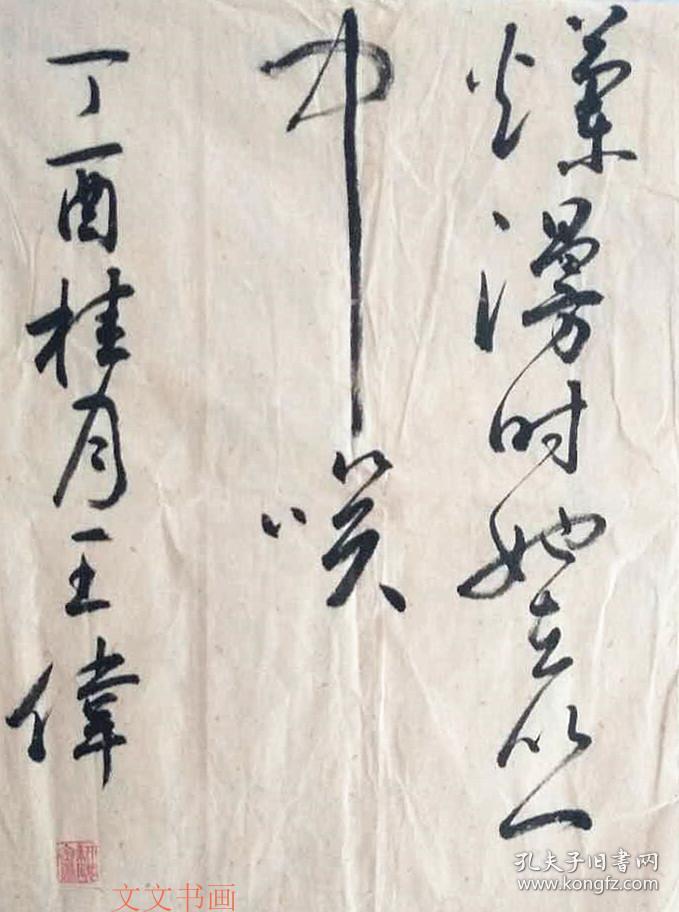 爛漫时她在丛
中咲
丁酉桂月王偉
文文书画
孔夫子旧书网
www.kongfz.com